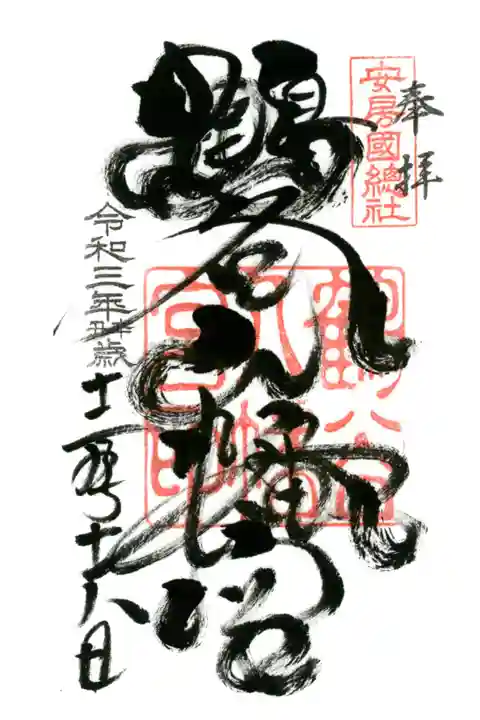 奉拝
安房國總社
鶴谷八幡宮
鶴谷
八幡
宮印
令和三年辛丑歳
十二月十八日